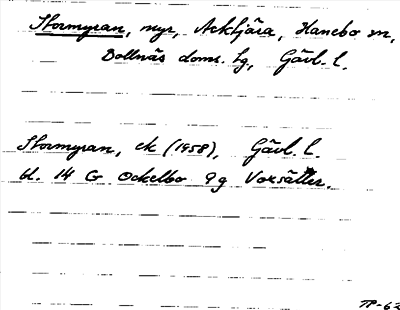 Stormyran, myr, Arkljära, Hanebo sn,
Bollnäs doms. hg, Gävl. l.
Stormyran, ek (1958), Gävl. l.
bl. 14 G Ockelbo 9 g Voxsätter.
TP-62